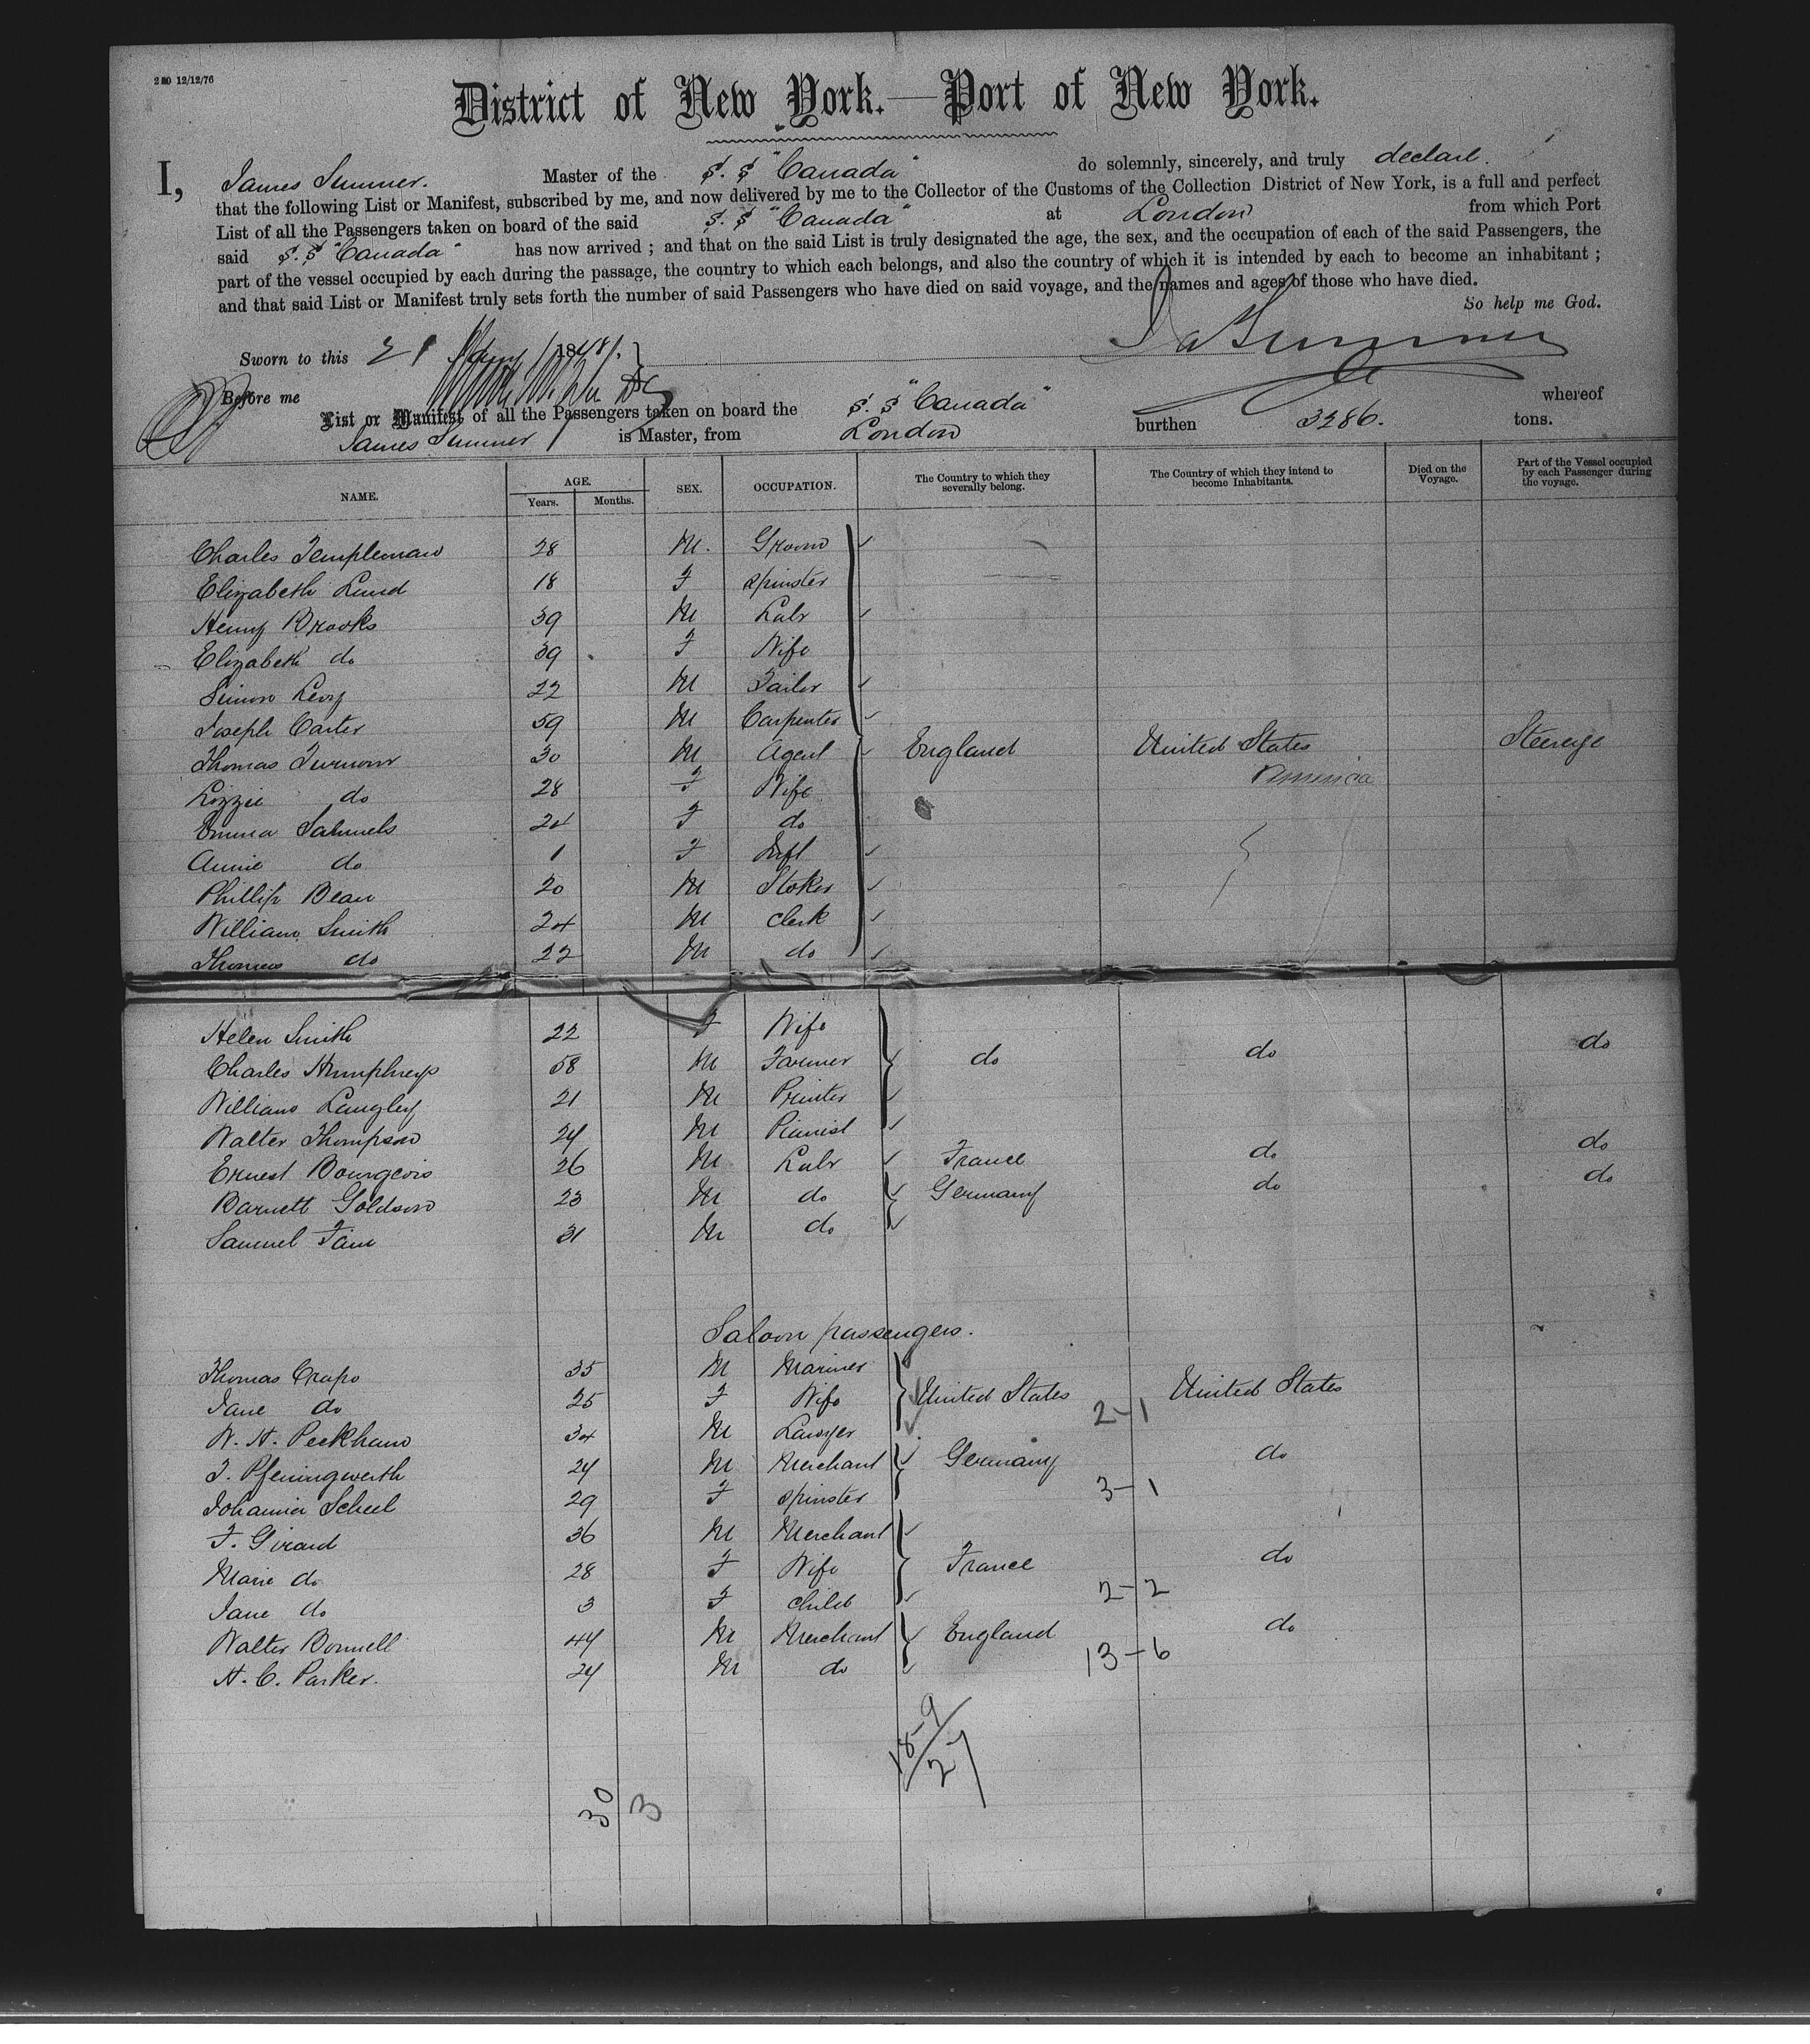 240 12/12/76
District of New York.—Port of New York.
I, James Sumner. Master of the S.S "Canada" do solemnly, sincerely, and truly declare.
that the following List or Manifest, subscribed by me, and now delivered by me to the Collector of the Customs of the Collection District of New York, is a full and perfect
List of all the Passengers taken on board of the said S.S "Canada" at London from which Port
said S.S "Canada" has now arrived ; and that on the said List is truly designated the age, the sex, and the occupation of each of the said Passengers, the
part of the vessel occupied by each during the passage, the country to which each belongs, and also the country of which it is intended by each to become an inhabitant ;
and that said List or Manifest truly sets forth the number of said Passengers who have died on said voyage, and the names and ages of those who have died.
So help me God.
Sworn to this 21 18 Jas Sumner
Before me
List or Manifest of all the Passengers taken on board the S.S "Canada" whereof
James Sumner is Master, from London burthen 3286. tons.
NAME. AGE. Years. Months. SEX. OCCUPATION. The Country to which they severally belong. The Country of which they intend to become Inhabitants. Died on the Voyage. Part of the Vessel occupied by each Passenger during the voyage.
Charles Templeman 28 M. Groom
Elizabeth Lund 18 F Spinster
Henry Brooks 39 M Labr
Elizabeth do 39 F Wife
Simon Levy 22 M Tailor
Joseph Carter 59 M Carpenter
Thomas Turnour 30 M Agent England United States Steerage
Lizzie do 28 F Wife America
Emma Samuels 24 F do
Annie do 1 F Inft
Phillip Bean 20 M Stoker
William Smith 24 M Clerk
Thomas do 22 M do
Helen Smith 22 F Wife
Charles Humphreys 58 M Farmer do do do
William Langley 21 M Printer
Walter Thompson 24 M Pianist
Ernest Bourgeois 26 M Labr France do do
Barnett Goldson 23 M do Germany do do
Samuel Fain 31 M do
Saloon passengers.
Thomas Crapo 35 M Mariner
Jane do 25 F Wife United States United States
W. H. Peckham 34 M Lawyer 2-1
T. Pfeningwerth 24 M Merchant Germany do
Johanna Scheel 29 F Spinster 3-1
F. Girard 36 M Merchant
Marie do 28 F Wife France do
Jane do 3 F Child 2-2
Walter Bonnell 44 M Merchant England do
H. C. Parker. 24 M do 13-6
18-9
27
30 3